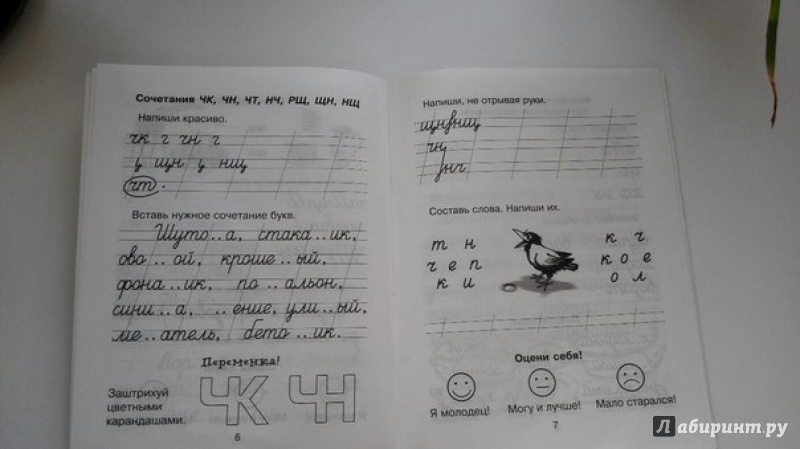 Сочетания ЧК, ЧН, ЧТ, НЧ, РЩ, ЩН, НЩ
Напиши красиво.
чк г чн г
щн нщ
чт .
Вставь нужное сочетание букв.
Шуто..а, стака..ик,
ово..ой, кроше..ый,
фона..ик, по..альон,
сини..а, ..ение, ули..ый,
ме..атель, бето..ик.
Переменка!
Заштрихуй
цветными
карандашами.
ЧК ЧН
6
Напиши, не отрывая руки.
чн
нч
Составь слова. Напиши их.
т н к ч
ч е п к о е
к и о л
Оцени себя!
Я молодец! Могу и лучше! Мало старался!
7
Лабиринт.ру